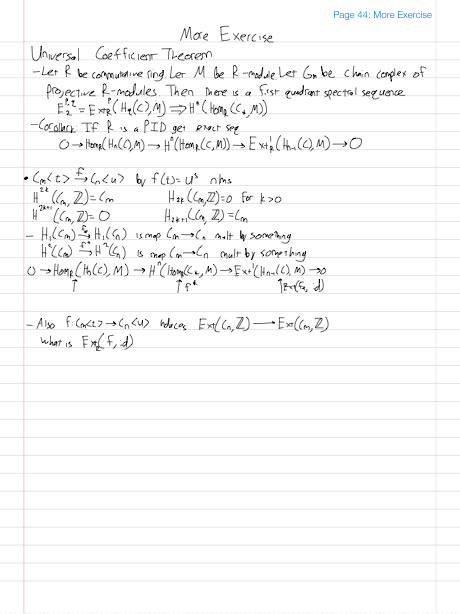 Page 44: More Exercise
More Exercise
Universal Coefficient Theorem
- Let R be commutative ring. Let M be R-module. Let C* be chain complex of
projective R-modules. Then there is a first quadrant spectral sequence
E₂^{p,q} = Ext_R^p(H_q(C), M) ⟹ H*(Hom_R(C*, M))
- Corollary: If R is a PID get exact seq
0 → Hom_R(H_n(C), M) → H^n(Hom_R(C, M)) → Ext_R^1(H_{n-1}(C), M) → 0
• C_m<t> →f C_n<u> by f(t) = u^s n|ms
H^{2k}(C_m, Z) = C_m H_{2k}(C_m, Z) = 0 for k>0
H^{2k+1}(C_m, Z) = 0 H_{2k+1}(C_m, Z) = C_m
- H_1(C_m) →f* H_1(C_n) is map C_m → C_n mult by something
H^2(C_m) f* H^2(C_n) is map C_m → C_n mult by something
0 → Hom_R(H_n(C), M) → H^n(Hom_R(C*, M)) → Ext^1(H_{n-1}(C), M) → 0
↑ ↑ f* ↑ Ext(f*, id)
- Also f: C_m<t> → C_n<u> induces Ext(C_n, Z) → Ext(C_m, Z)
what is Ext(f, id)